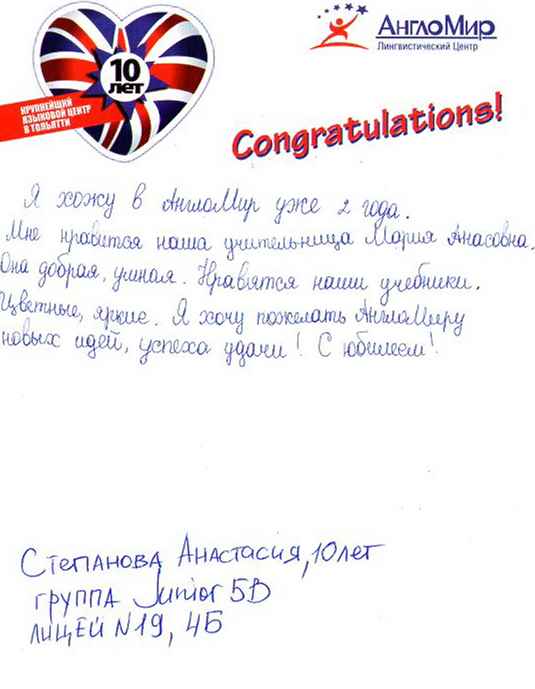 10
лет
КРУПНЕЙШИЙ
ЯЗЫКОВОЙ ЦЕНТР
В ТОЛЬЯТТИ
АнглоМир
Лингвистический Центр
Congratulations!
Я хожу в АнглоМир уже 2 года.
Мне нравится наша учительница Мария Анасовна.
Она добрая, умная. Нравятся наши учебники.
Цветные, яркие. Я хочу пожелать АнглоМиру
новых идей, успеха удачи! С юбилеем!
Степанова Анастасия, 10 лет
группа Junior 5В
лицей N19, 4Б